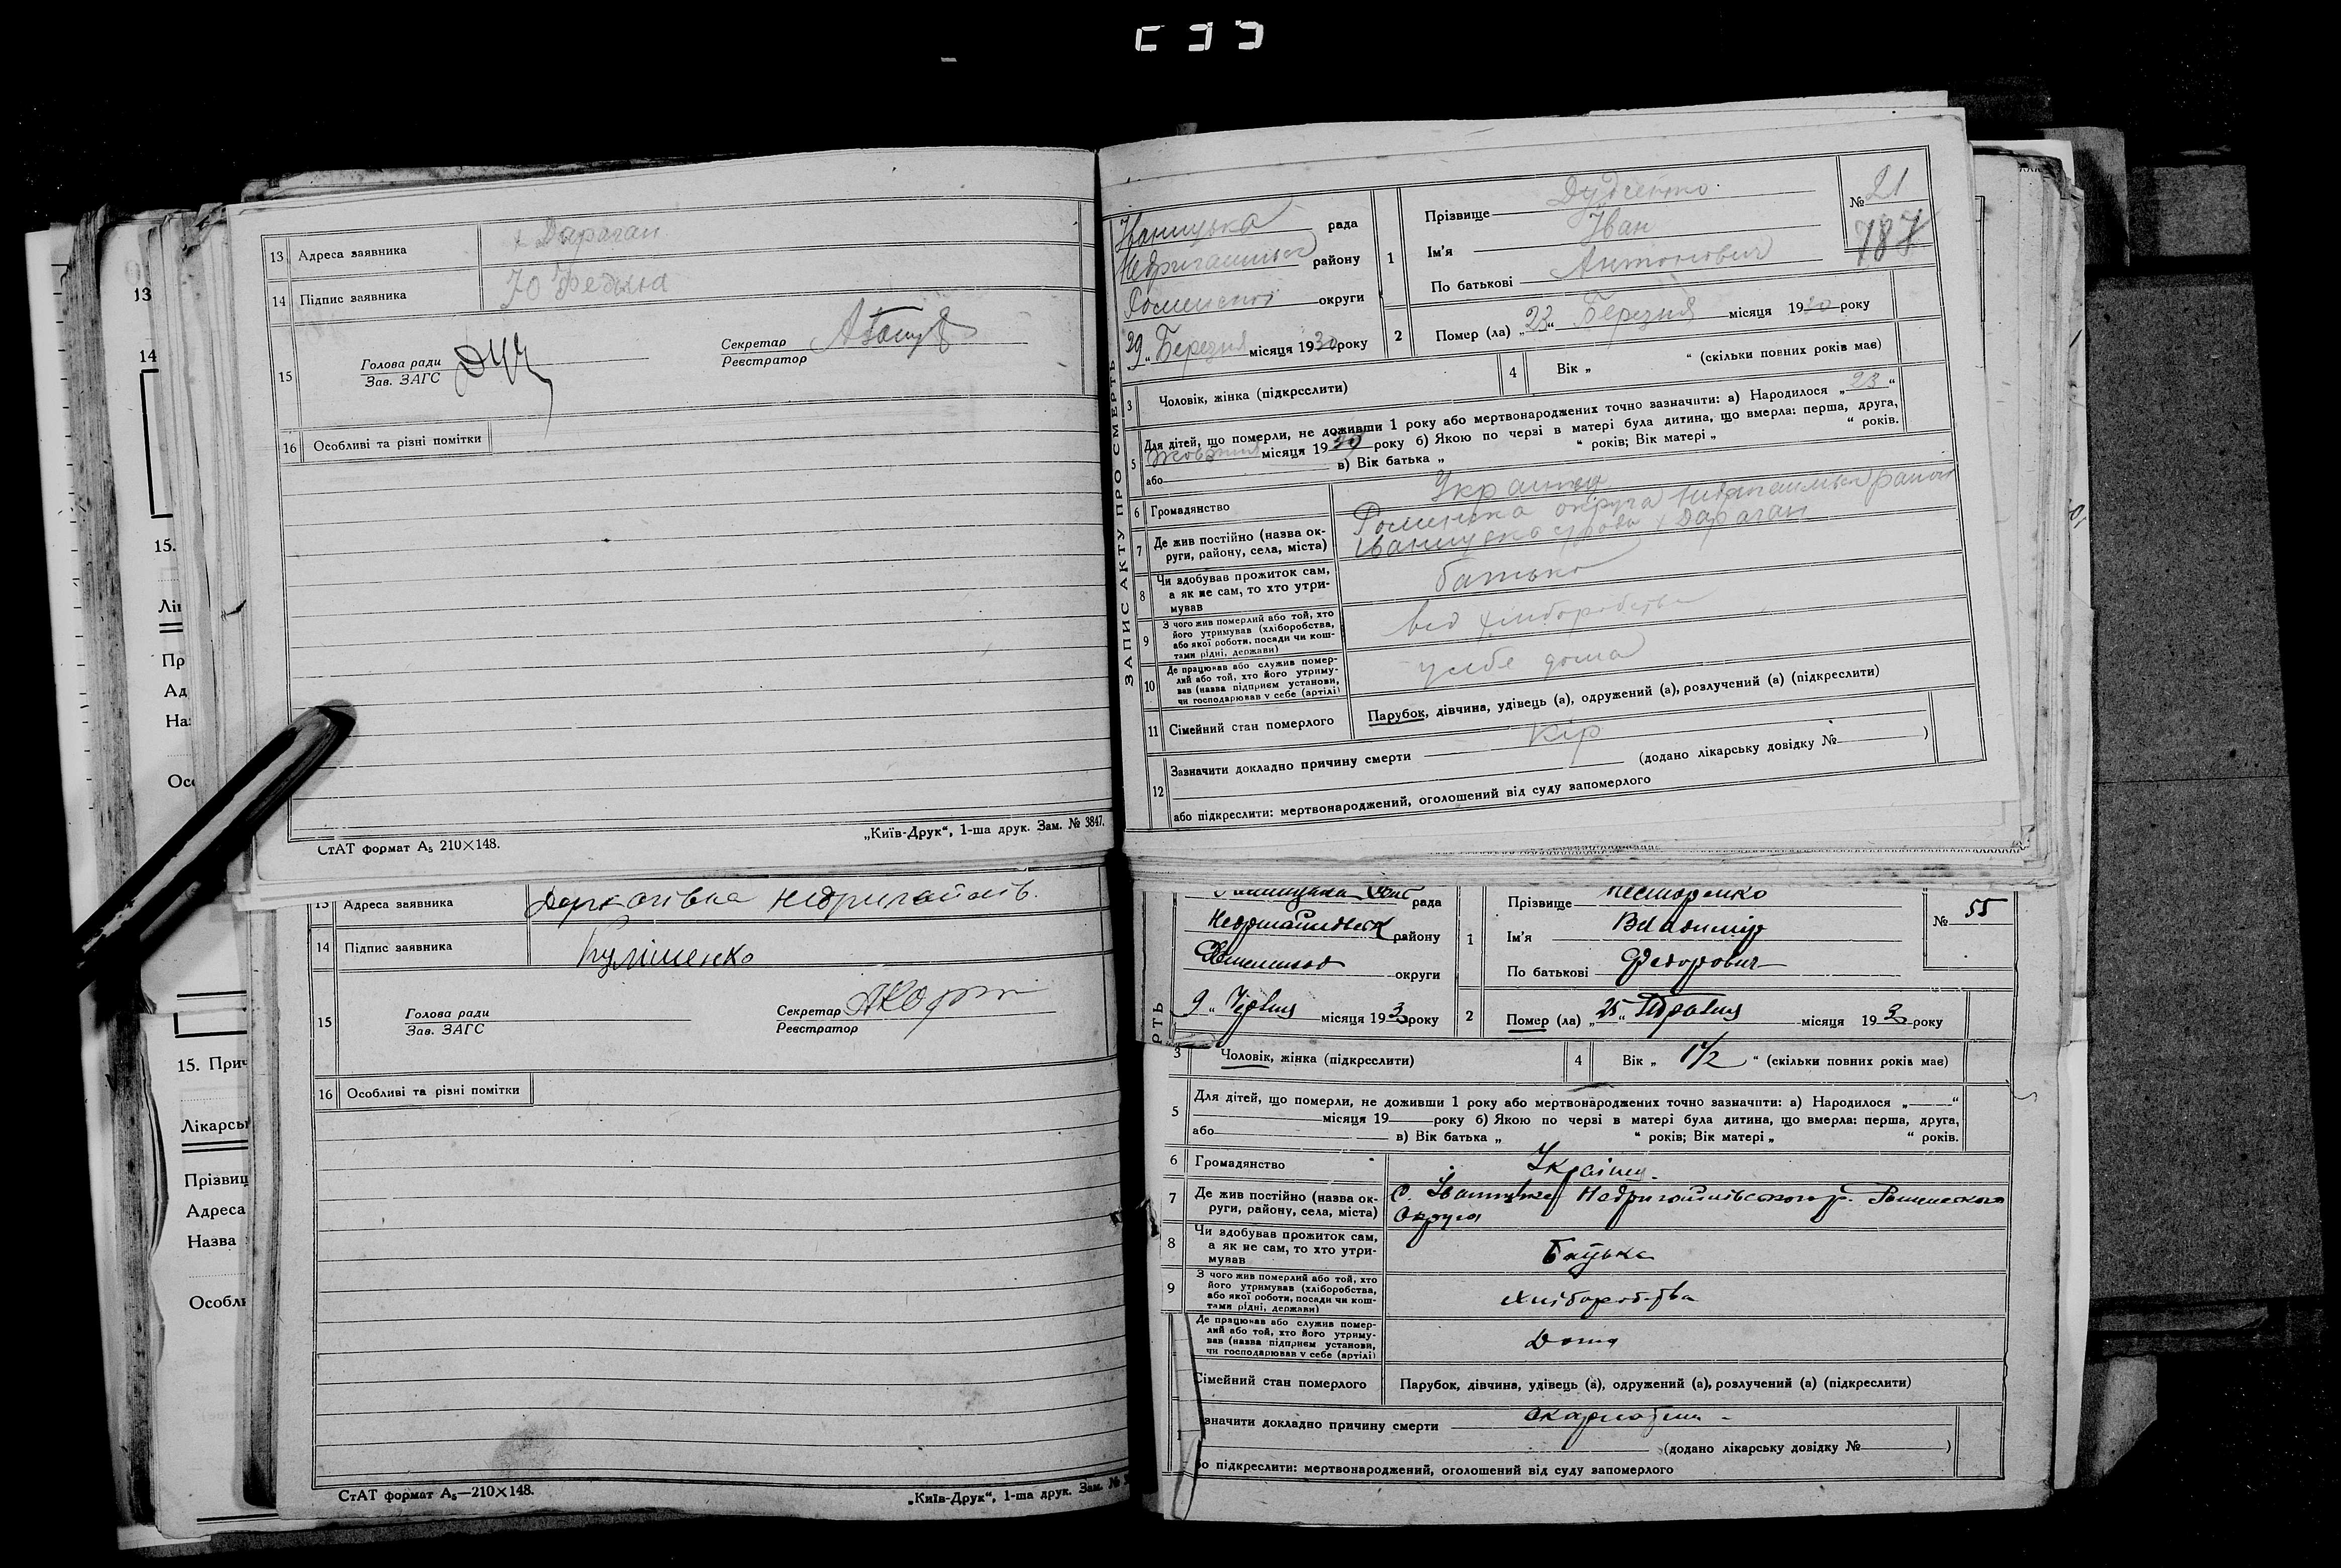 13 Адреса заявника х Дараган
14 Підпис заявника Ю Федына
15 Голова ради
Зав. ЗАГС
Секретар
Реєстратор
16 Особливі та різні помітки
СтАТ формат А₅ 210×148.
„Київ-Друк“, 1-ша друк. Зам. № 3847.
ЗАПИС АКТУ ПРО СМЕРТЬ
Іваницька рада
району
округи
29 „ Березня місяця 1930 року
1 Прізвище
Ім'я Іван
По батькові Антонович
№ 21
787
2 Помер (ла) „23“ Березня місяця 1930 року
3 Чоловік, жінка (підкреслити)
4 Вік „ “ (скільки повних років має)
5 Для дітей, що померли, не доживши 1 року або мертвонароджених точно зазначити: а) Народилося „23“
Жовтня місяця 19 року б) Якою по черзі в матері була дитина, що вмерла: перша, друга,
або в) Вік батька „ “ років; Вік матері „ “ років.
6 Громадянство
7 Де жив постійно (назва округи, району, села, міста) Роменська округа район
х Дараган
8 Чи здобував прожиток сам, а як не сам, то хто утримував батько
9 З чого жив померлий або той, хто його утримував (хліборобства, або якої роботи, посади чи коштами рідні, держави) від хліборобства
10 Де працював або служив померлий або той, хто його утримував (назва підприєм установи, чи господарював у себе (артілі) у себе дома
11 Сімейний стан померлого Парубок, дівчина, удівець (а), одружений (а), розлучений (а) (підкреслити)
12 Зазначити докладно причину смерти Кір
(додано лікарську довідку № )
або підкреслити: мертвонароджений, оголошений від суду запомерлого
13 Адреса заявника
14 Підпис заявника Куліменко
15 Голова ради
Зав. ЗАГС
Секретар
Реєстратор
16 Особливі та різні помітки
СтАТ формат А₅—210×148.
„Київ-Друк“, 1-ша друк. Зам. №
рада
району
округи
9 „ Червня місяця 193 року
1 Прізвище Нестеренко
Ім'я Владимір
По батькові Федорович
№ 55
2 Помер (ла) „25“ Травня місяця 193 року
3 Чоловік, жінка (підкреслити)
4 Вік „ 1½ “ (скільки повних років має)
5 Для дітей, що померли, не доживши 1 року або мертвонароджених точно зазначити: а) Народилося „ “
місяця 19 року б) Якою по черзі в матері була дитина, що вмерла: перша, друга,
або в) Вік батька „ “ років; Вік матері „ “ років.
6 Громадянство Українец
7 Де жив постійно (назва округи, району, села, міста) С. Іваниця Недригайлівського р. Роменского
Округа
8 Чи здобував прожиток сам, а як не сам, то хто утримував Батька
9 З чого жив померлий або той, хто його утримував (хліборобства, або якої роботи, посади чи коштами рідні, держави) Хліборобства
Де працював або служив померлий або той, хто його утримував (назва підприєм установи, чи господарював у себе (артілі) Дома
Сімейний стан померлого Парубок, дівчина, удівець (а), одружений (а), розлучений (а) (підкреслити)
значити докладно причину смерти Скарлатина
(додано лікарську довідку № )
бо підкреслити: мертвонароджений, оголошений від суду запомерлого
13
14
15.
Лі
Пр
Ад
На
Осо
15. Прич
Лікарсь
Прізвищ
Адреса
Назва
Особл